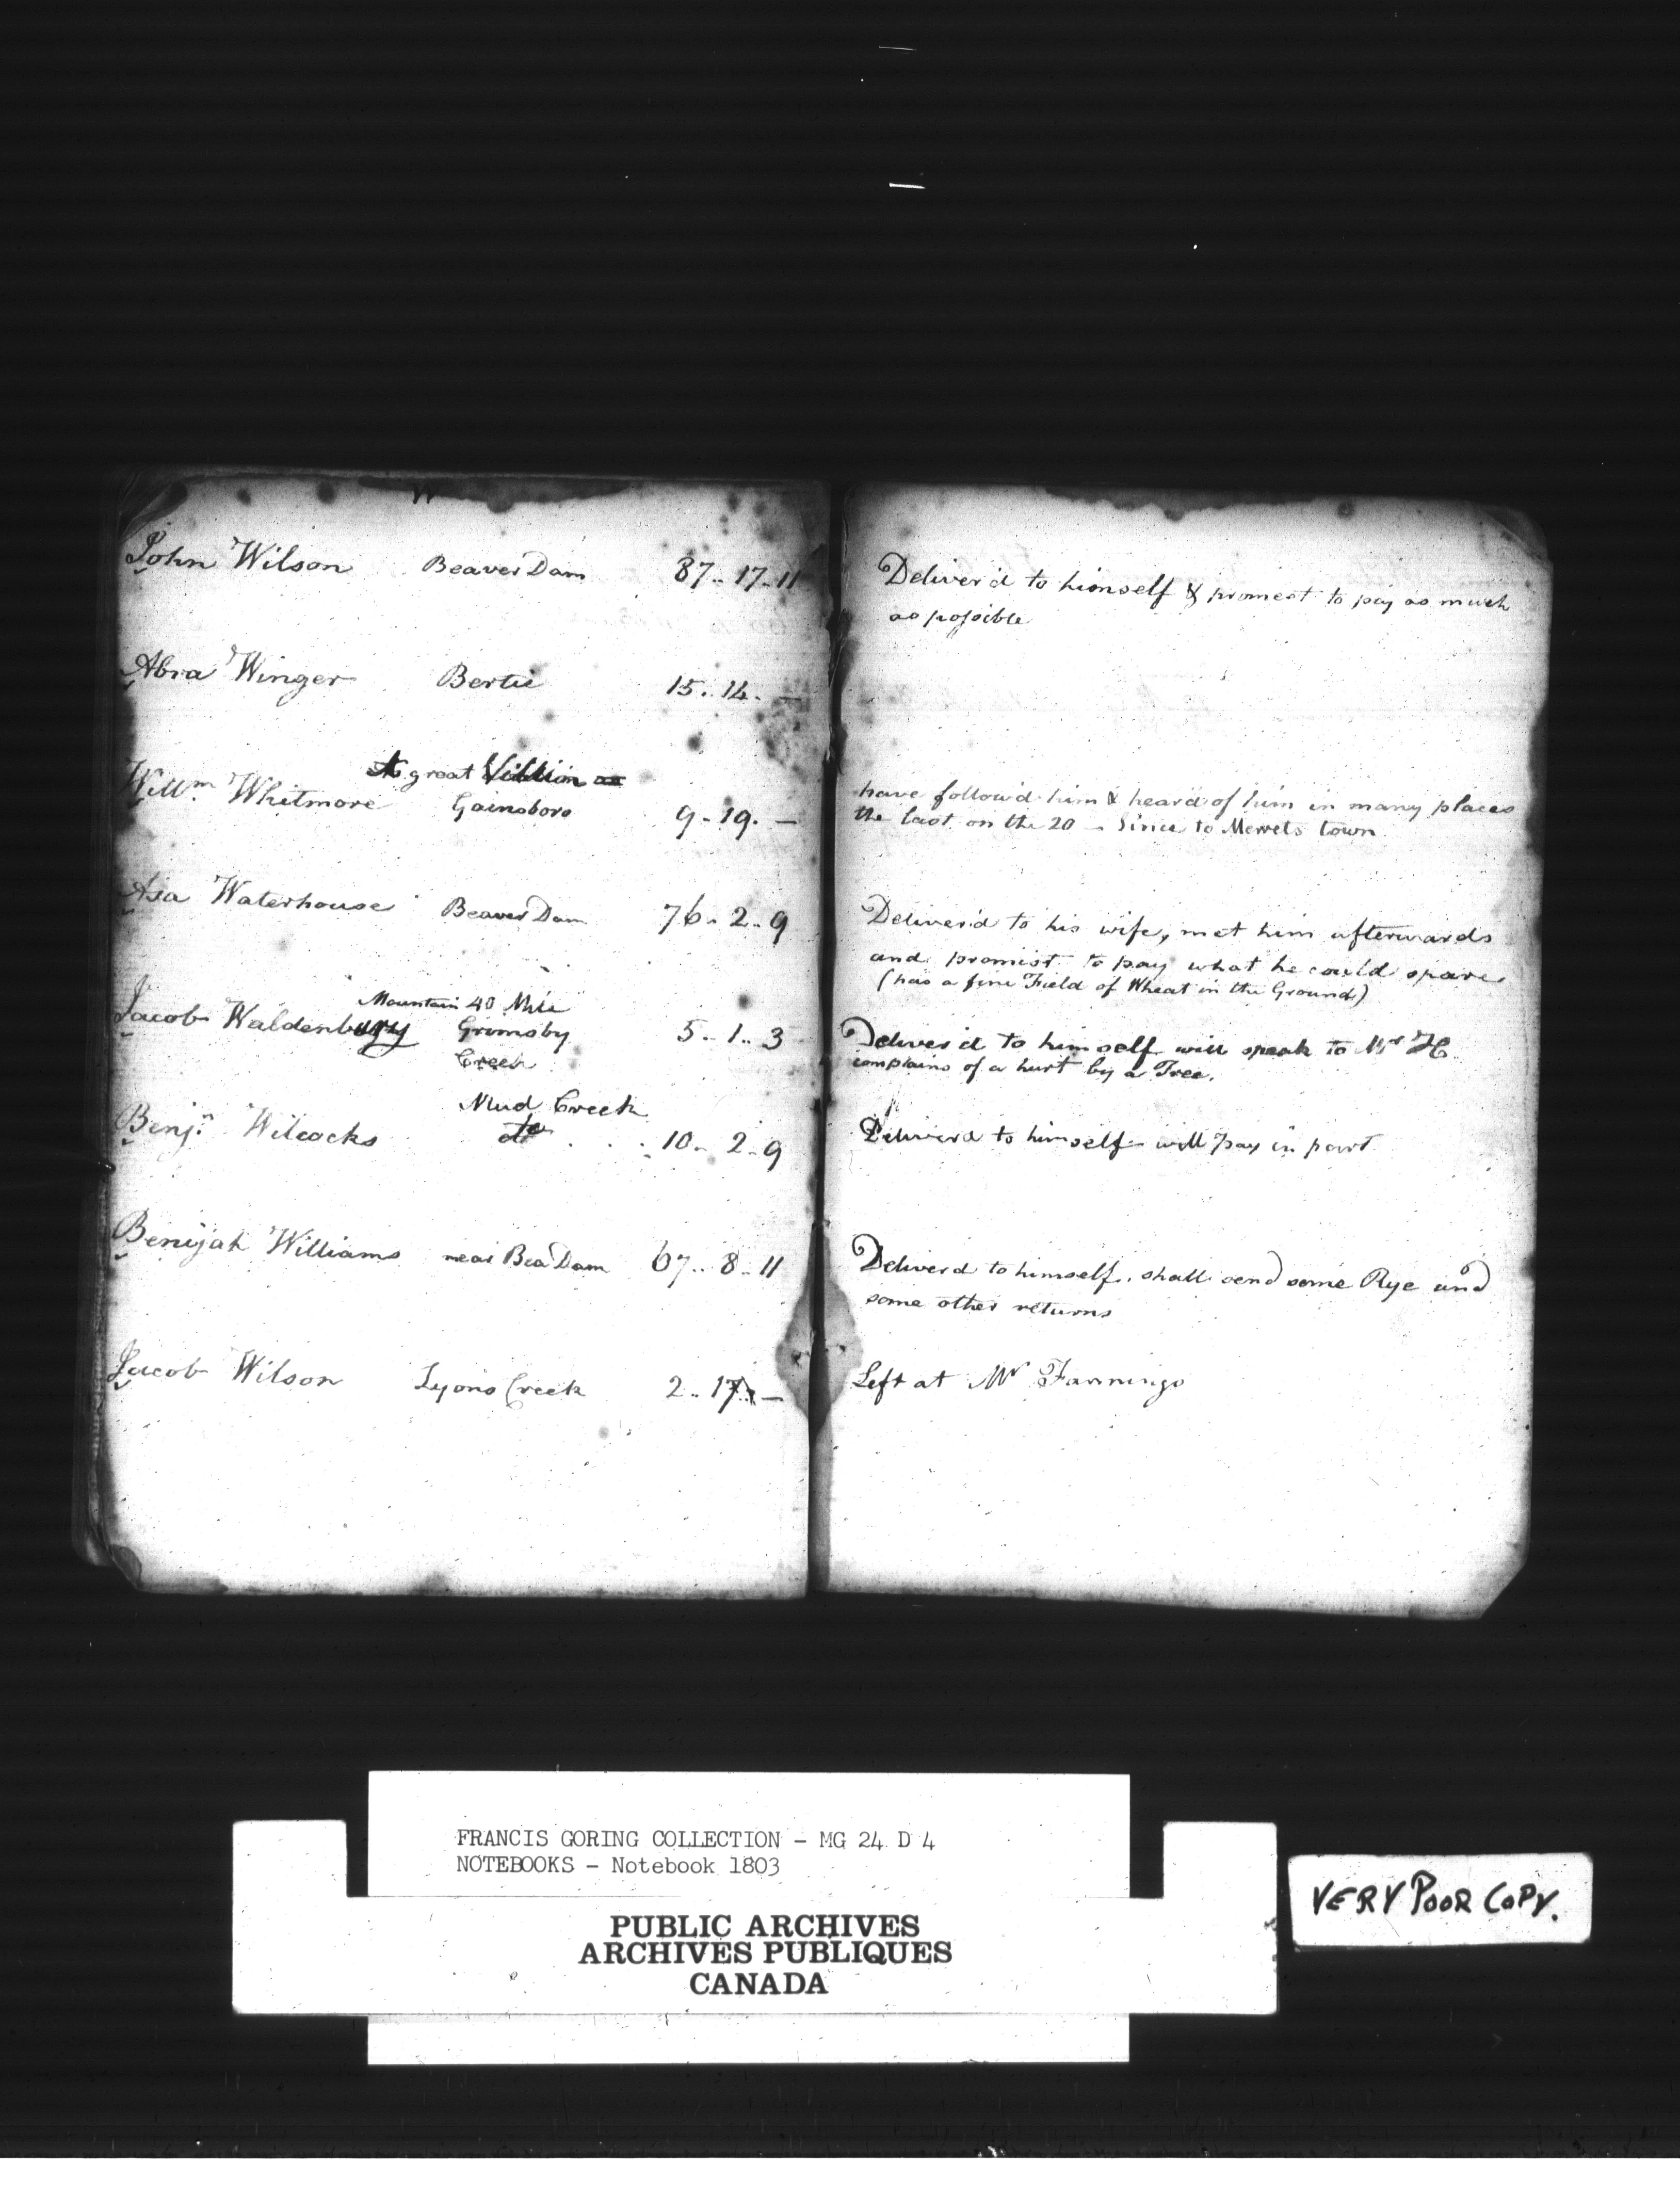 W
John Wilson Beaver Dam 87.. 17.. 11
Abra Winger Bertie 15.. 14. —
A great Villion
Willm. Whitmore Gainsboro 9 - 19. —
Asa Waterhouse Beaver Dam 76.. 2.. 9
Mountain 40 Mile
Jacob Waldenbury Grimsby 5.. 1.. 3
Creek
Mud Creek
Benjn. Wilcocks do 10.. 2.. 9
Benijah Williams near Bea Dam 67.. 8.. 11
Jacob Wilson Lyons Creek 2.. 17.. —
Deliver'd to himself & promest to pay as much
as possible
have follow'd him & heard of him in many places
the last on the 20 — Since to Merrets town
Deliver'd to his wife, met him afterwards
and promist to pay what he could spare
(has a fine Field of Wheat in the Ground)
Deliver'd to himself will speak to Mr H.
complains of a hurt by a Tree.
Deliverd to himself will pay in part
Deliverd to himself. shall send some Rye and
some other returns
Left at Mr Fannings
FRANCIS GORING COLLECTION - MG 24 D 4
NOTEBOOKS - Notebook 1803
PUBLIC ARCHIVES
ARCHIVES PUBLIQUES
CANADA
VERY POOR COPY.